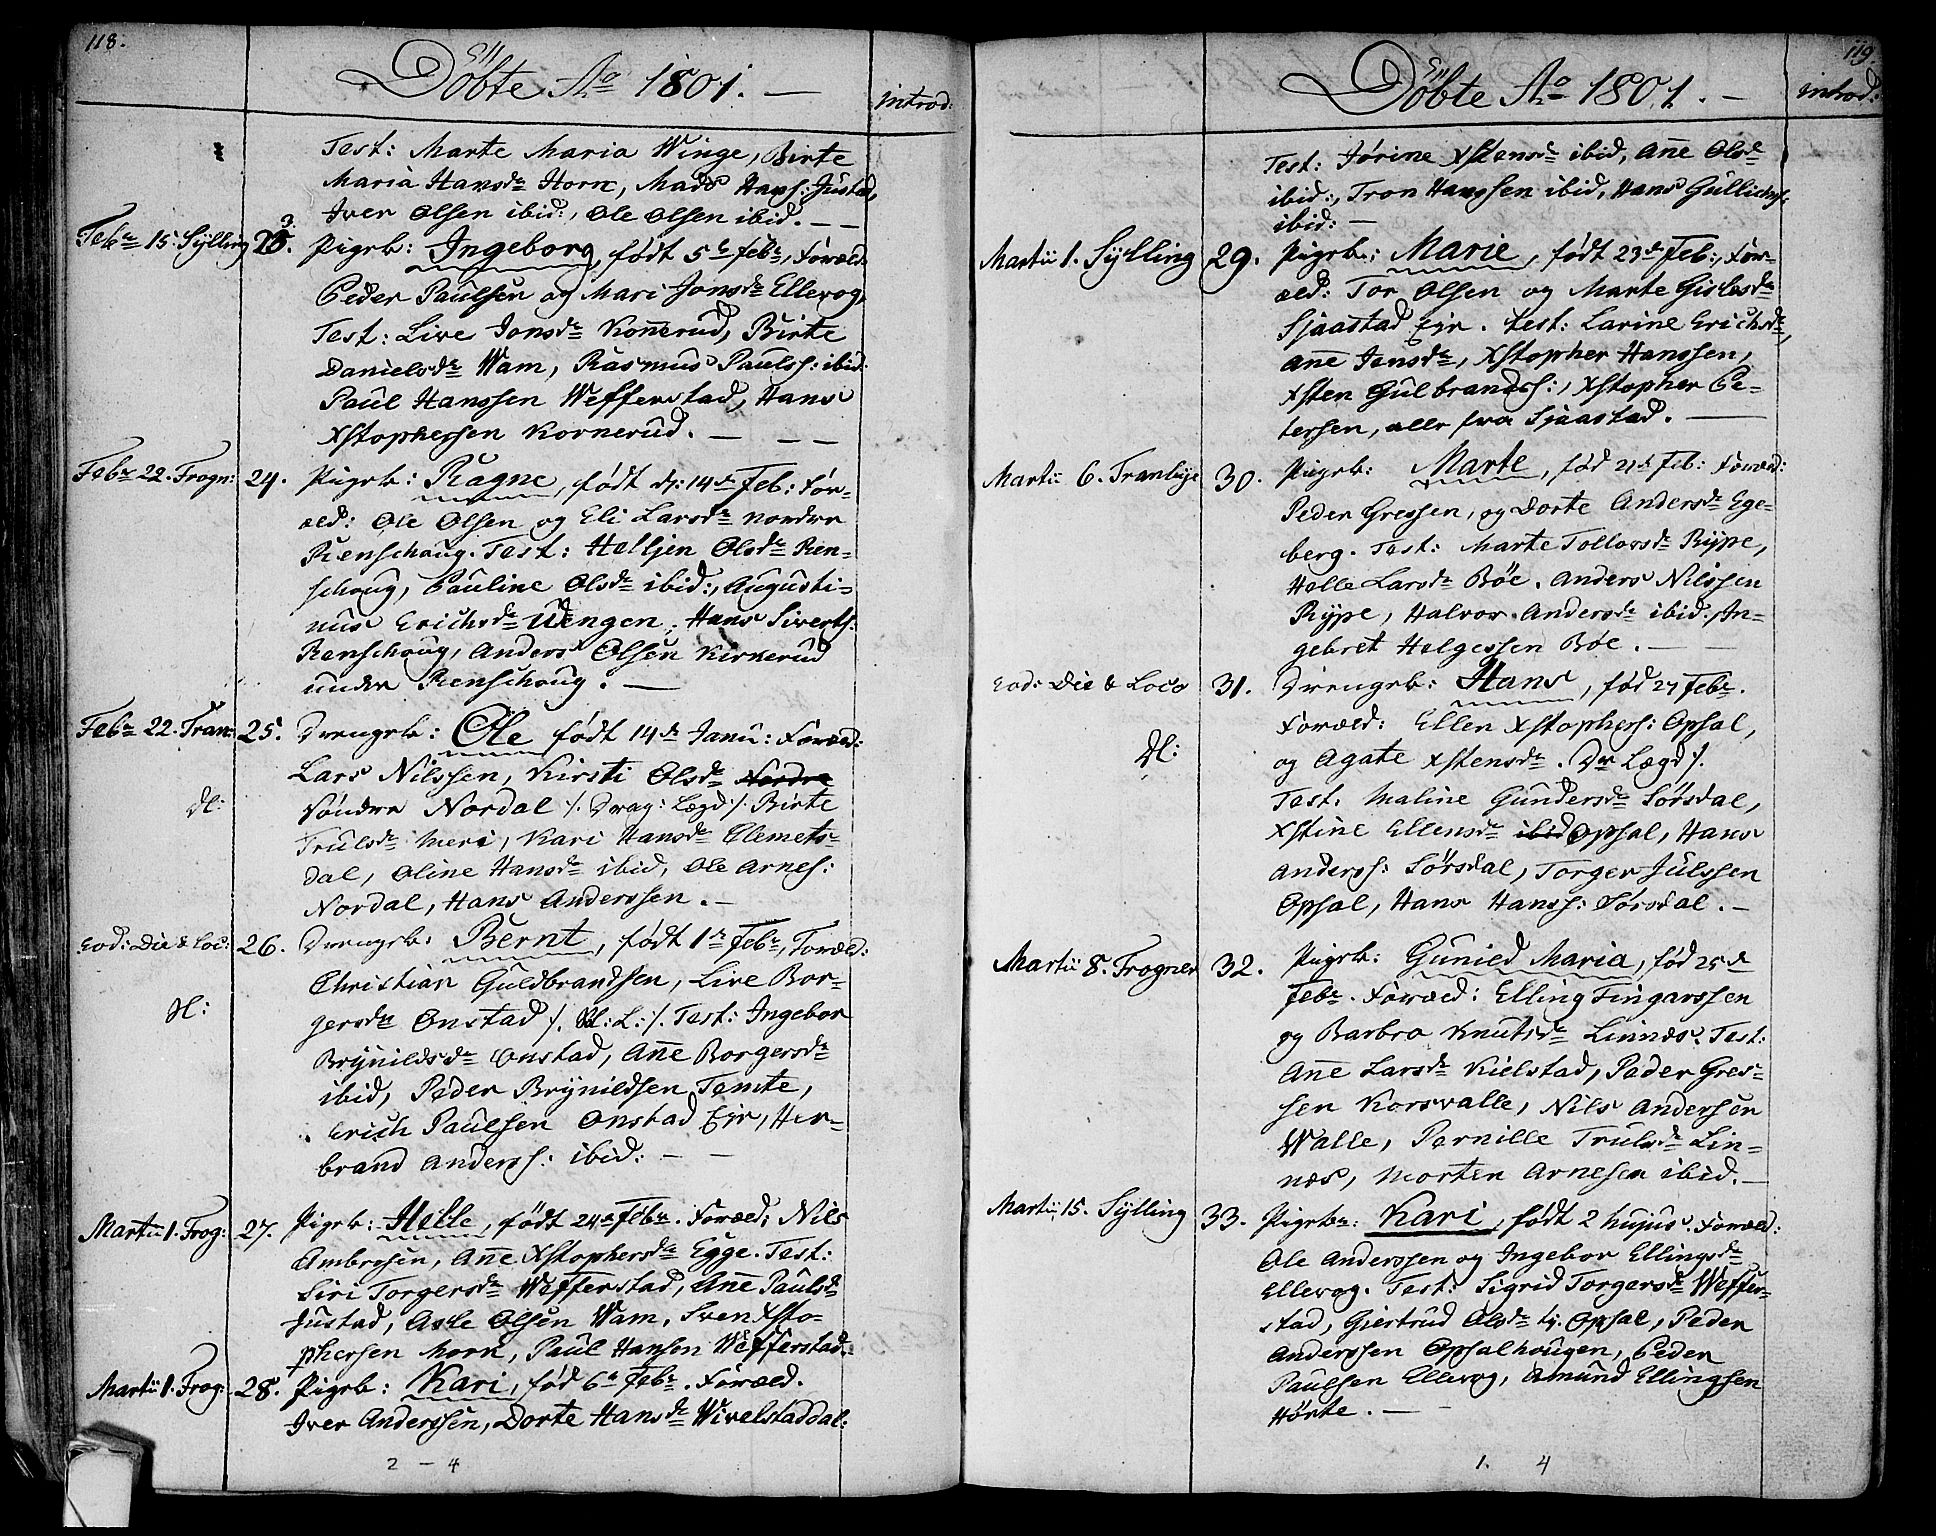 118.
Döbte Ao 1801. —
introd:
Test: Marte Maria Winge, Birte
Maria Hansdr Horn, Mads Hansf: Justad,
Iver Olsen ibid:, Ole Olsen ibid. — —
Febr 15. Sÿlling 23. Pigeb: Ingeborg, födt 5te Febr, Foræld:
Peder Paulsen og Mari Jonsdr Ellevog,
Test: Live Jonsdr Konnerud, Birte
Danielsdr Wam, Rasmus Paulss: ibid:
Paul Hanssen Wefferstad, Hans
Xstophersen Kornerud. — — —
Febr 22. Frogn: 24. Pigeb: Ragne, födt d: 14de Feb: For-
æld: Ole Olsen og Eli Larsdr nordre
Renschoug. Test: Helljen Olsdr Ren-
schoug, Pauline Olsdr ibid:, Augusti-
nus Erichsdr Uengen, Hans Siverts:
Renschoug, Anders Olsen Kirkerud
under Renschoug. —
Febr 22. Tran: 25. Drengeb: Ole födt 14de Janu: Foræld:
Lars Nilssen, Kirsti Olsdr Nordre
Söndre Nordal /. Drag: Lægd /. Birte
Dl:
Trulsdr Meri, Kari Hansdr Clemets-
dal, Oline Hansdr ibid, Ole Arnes:
Nordal, Hans Anderssen. —
Eod: Die & Loc: 26. Drengeb: Bernt, födt 1de Febr, Foræld:
Christian Guldbrandsen, Live Bor-
gersdr Onstad /. Sl: L: /. Test: Ingebor
Sl:
Brÿnildsdr Onstad, Ane Borgersdr
ibid, Peder Brÿnildsen Temte,
Erich Paulsen Onstad Eyr, Her-
brand Anderss: ibid: — —
Martii 1. Frog: 27. Pigeb: Helle, födt 24de Febr. Foræld: Nils
Ambrosen, Ane Xstophersdr Egge. Test:
Siri Torgersdr Wefferstad, Ane Paulsdr
Justad, Asle Olsen Wam, Sven Xsto-
phersen Morn, Paul Hansen Wefferstad.
Martii 1. Frog: 28. Pigeb: Kari, föd 6te Febr. Foræld.
Iver Anderssen, Dorte Hansdr Wivelstaddal:
2 — 4
119.
Döbte Ao 1801. —
introd:
Test: Jörine Xstensdr ibid, Ane Olsdr
ibid:, Tron Hanssen ibid, Hans Gullichs:
ibid: —
Martii 1. Sÿlling 29. Pigeb: Marie, födt 23de Feb:, For-
æld: Tor Olsen og Marte Gislesdr
Sjaastad Eyr. Test: Larine Erichsdr,
Ane Jensdr, Xstopher Hanssen,
Xsten Gulbrandss:, Xstopher Pe-
tersen, alle fra Sjaastad. —
Martii 6. Tranbÿe 30. Pigeb: Marte, föd 21de Feb: Foræld:
Peder Gressen, og Dorte Andersdr Ege-
berg. Test: Marte Tollovsdr Rÿpe,
Helle Larsdr Böe. Anders Nilssen
Rÿpe, Halvor Andersdr ibid:, In-
gebret Helgessen Böe. — —
Eod: Die & Loco 31. Drengeb: Hans, föd 27 Febr.
Foræld: Ellen Xstophers: Opsal,
Dl:
og Agate Xstensdr. Dr Lægd /.
Test: Maline Gundersdr Sörsdal,
Xstine Ellensdr ibid Opsal, Hans
Anderss: Sörsdal, Torger Julssen
Opsal, Hans Hanss: Sörsdal. —
Martii 8. Frogner 32. Pigeb: Gunild Maria, föd 25de
Febr. Foræld: Elling Fingarssen
og Barbro Knutsdr Linnes. Test:
Ane Larsdr Kielstad, Peder Gres-
sen Korsvalle, Nils Andersen
Walle, Pernille Trulsdr Lin-
nes, Morten Arnesen ibid. —
Martii 15. Sÿlling 33. Pigebn: Kari, födt 2 hujus. Foræld:
Ole Anderssen og Ingebor Ellingsdr
Ellevog. Test: Sigrid Torgersdr Weffer-
stad, Giertrud Olsdr Opsal, Peder
Anderssen Opsalhougen, Peder
Paulsen Ellevog, Amund Ellingsen
Hörte. — —
1. 4